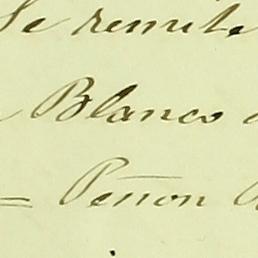 Se remite
Blanco
= Peñon